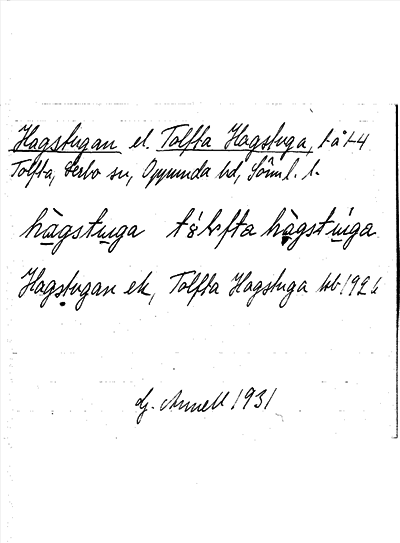 Hagstugan el. Tolfta Hagstuga, t å 1-4
Tolfta, Lerbo sn, Oppunda hd, Sörml. l.
hagstuga tolfta hagstuga
Hagstugan ek, Tolfta Hagstuga jrb 1926
Hj. Annell 1931